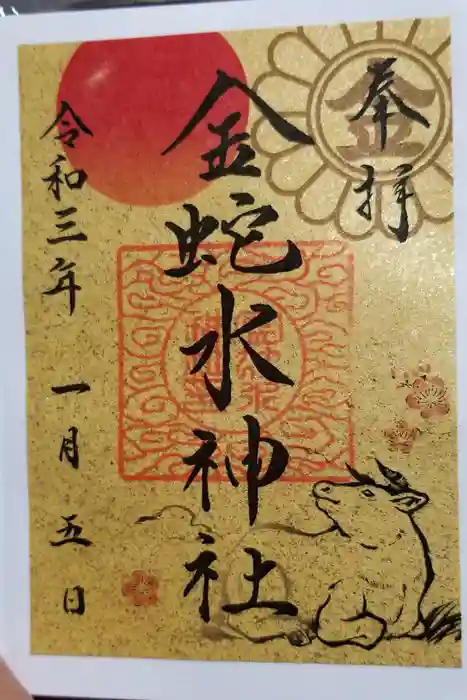 奉拝
金
金蛇水神社
令和三年一月五日